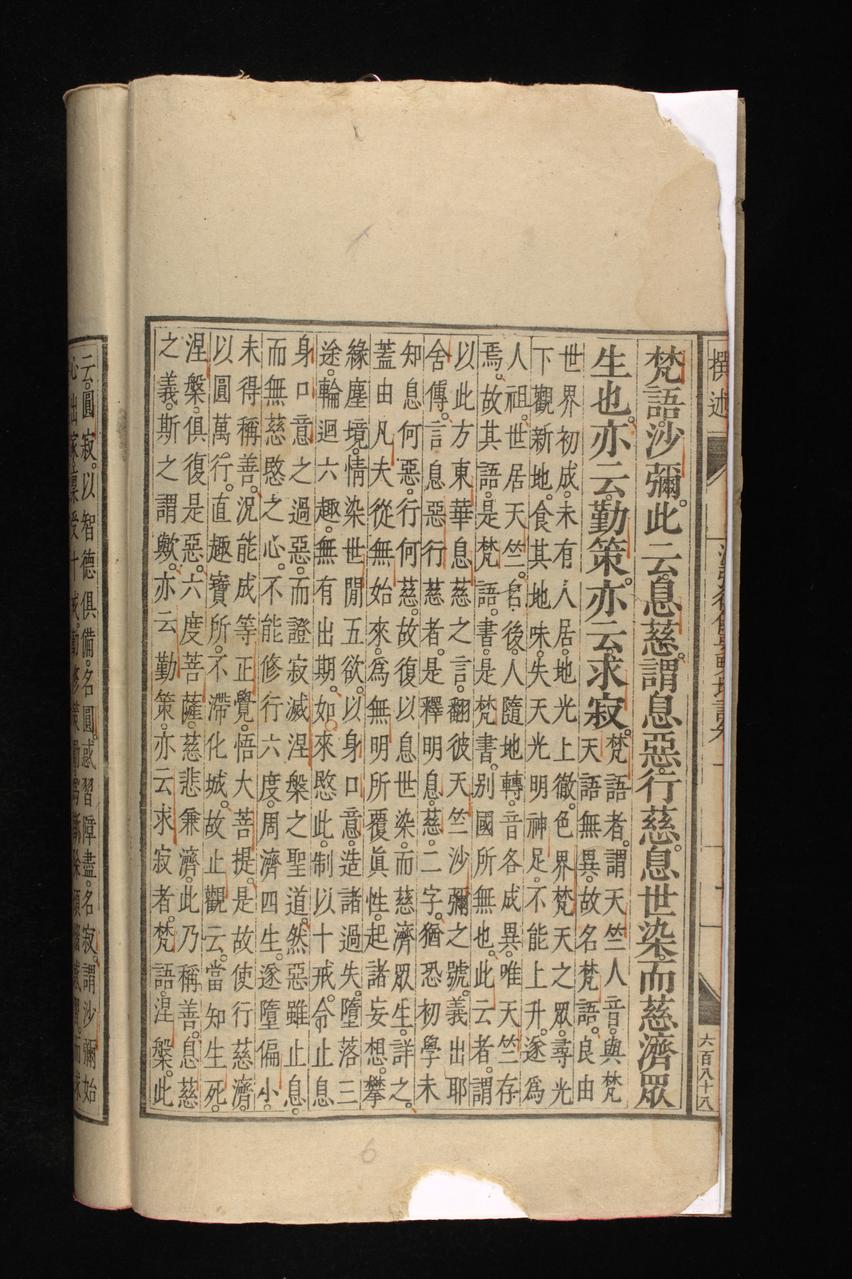 撰述
六百八十八
梵語沙彌。此云息慈。謂息惡行慈。息世染。而慈濟眾
生也。亦云勤策。亦云求寂。
梵語者。謂天竺人音與梵
天語無異。故名梵語。良由
世界初成。未有人居。地光上徹。色界梵天之眾。尋光
下觀新地。食其地味。失天光明神足。不能上升。遂為
人祖。世居天竺。後。人隨地轉。音各成異。唯天竺存
焉。故其語。是梵語。書。是梵書。別國所無也。此云者。謂
以此方東華息慈之言。翻彼天竺沙彌之號。義出耶
舍傳。言息惡行慈者。是釋明息慈。二字。猶恐初學未
知息何惡。行何慈。故復以息世染。而慈濟眾生。詳之。
蓋由凡夫從無始來。為無明所覆眞性。起諸妄想。攀
緣塵境。情染世閒五欲。以身口意。造諸過失。墮落三
途。輪迴六趣。無有出期。如來愍此。制以十戒。令止息
身口意之過惡。而證寂滅涅槃之聖道。然惡雖止息。
而無慈愍之心。不能修行六度。周濟四生。遂墮偏小。
未得稱善。況能成等正覺。悟大菩提。是故使行慈濟。
以圓萬行。直趣寶所。不滯化城。故止觀云。當知生死。
涅槃。俱復是惡。六度菩薩。慈悲兼濟。此乃稱善。息慈
之義。斯之謂歟。亦云勤策。亦云求寂者。梵語涅槃。此
云圓寂。以智德俱備。名圓。惑習障盡。名寂。謂沙彌始
心出家稟受十戒